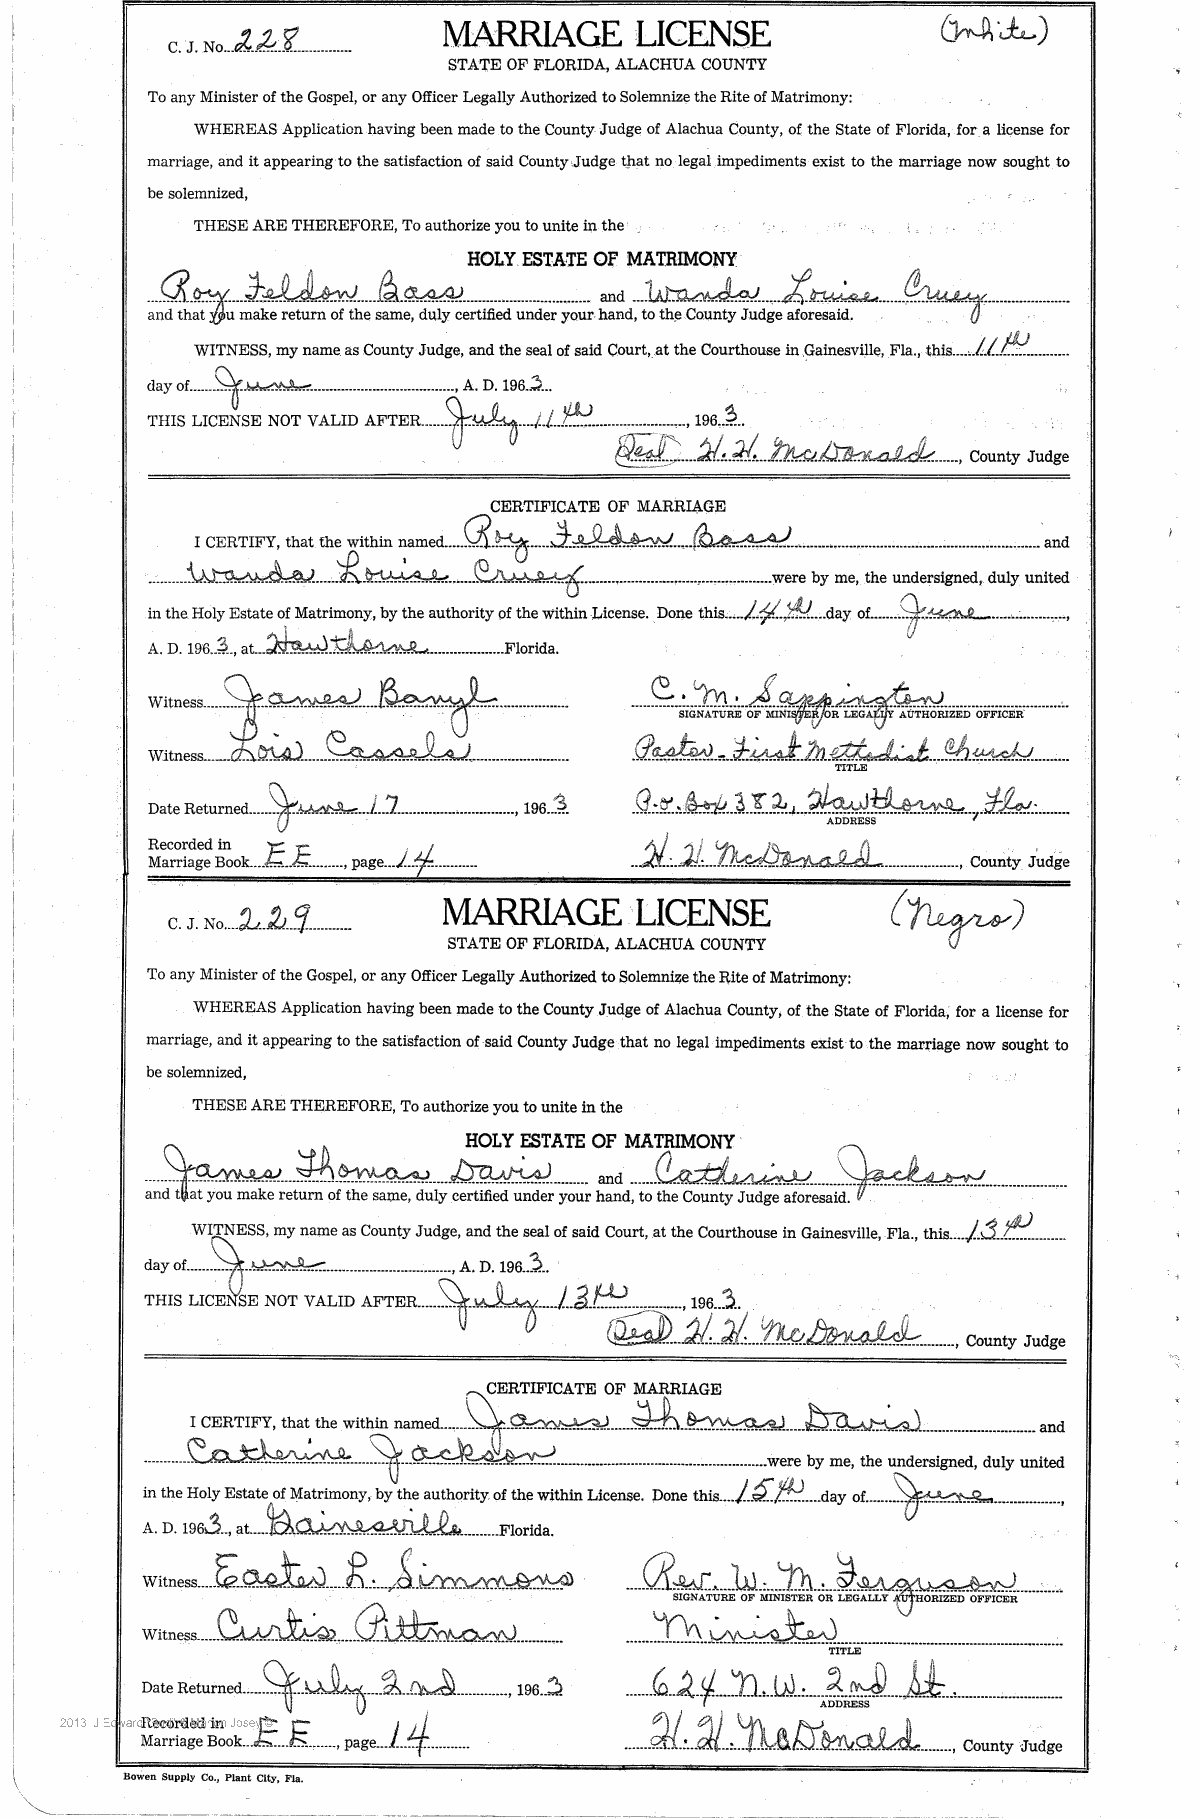 C. J. No. 228 MARRIAGE LICENSE (White)
STATE OF FLORIDA, ALACHUA COUNTY
To any Minister of the Gospel, or any Officer Legally Authorized to Solemnize the Rite of Matrimony:
WHEREAS Application having been made to the County Judge of Alachua County, of the State of Florida, for a license for
marriage, and it appearing to the satisfaction of said County Judge that no legal impediments exist to the marriage now sought to
be solemnized,
THESE ARE THEREFORE, To authorize you to unite in the
HOLY ESTATE OF MATRIMONY
Roy Feldon Bass and Wanda Louise Cruey
and that you make return of the same, duly certified under your hand, to the County Judge aforesaid.
WITNESS, my name as County Judge, and the seal of said Court, at the Courthouse in Gainesville, Fla., this 11th
day of June, A. D. 1963
THIS LICENSE NOT VALID AFTER July 11th, 1963.
(Seal) H. H. McDonald, County Judge
CERTIFICATE OF MARRIAGE
I CERTIFY, that the within named Roy Feldon Bass and
Wanda Louise Cruey were by me, the undersigned, duly united
in the Holy Estate of Matrimony, by the authority of the within License. Done this 14th day of June,
A. D. 1963, at Hawthorne Florida.
Witness James Banyl C. M. Sappington
SIGNATURE OF MINISTER OR LEGALLY AUTHORIZED OFFICER
Witness Lois Cassels Pastor - First Methodist Church
TITLE
Date Returned June 17, 1963 P.O. Box 382, Hawthorne, Fla.
ADDRESS
Recorded in
Marriage Book EE, page 14 H. H. McDonald, County Judge
C. J. No. 229 MARRIAGE LICENSE (Negro)
STATE OF FLORIDA, ALACHUA COUNTY
To any Minister of the Gospel, or any Officer Legally Authorized to Solemnize the Rite of Matrimony:
WHEREAS Application having been made to the County Judge of Alachua County, of the State of Florida, for a license for
marriage, and it appearing to the satisfaction of said County Judge that no legal impediments exist to the marriage now sought to
be solemnized,
THESE ARE THEREFORE, To authorize you to unite in the
HOLY ESTATE OF MATRIMONY
James Thomas Davis and Catherine Jackson
and that you make return of the same, duly certified under your hand, to the County Judge aforesaid.
WITNESS, my name as County Judge, and the seal of said Court, at the Courthouse in Gainesville, Fla., this 13th
day of June, A. D. 1963.
THIS LICENSE NOT VALID AFTER July 13th, 1963.
(Seal) H. H. McDonald, County Judge
CERTIFICATE OF MARRIAGE
I CERTIFY, that the within named James Thomas Davis and
Catherine Jackson were by me, the undersigned, duly united
in the Holy Estate of Matrimony, by the authority of the within License. Done this 15th day of June,
A. D. 1963, at Gainesville Florida.
Witness Easter L. Simmons Rev. W. M. Ferguson
SIGNATURE OF MINISTER OR LEGALLY AUTHORIZED OFFICER
Witness Curtis Pittman Minister
TITLE
Date Returned July 2nd, 1963 624 N.W. 2nd St.
ADDRESS
2013 J Edward Josey
Recorded in
Marriage Book EE, page 14 H. H. McDonald, County Judge
Bowen Supply Co., Plant City, Fla.